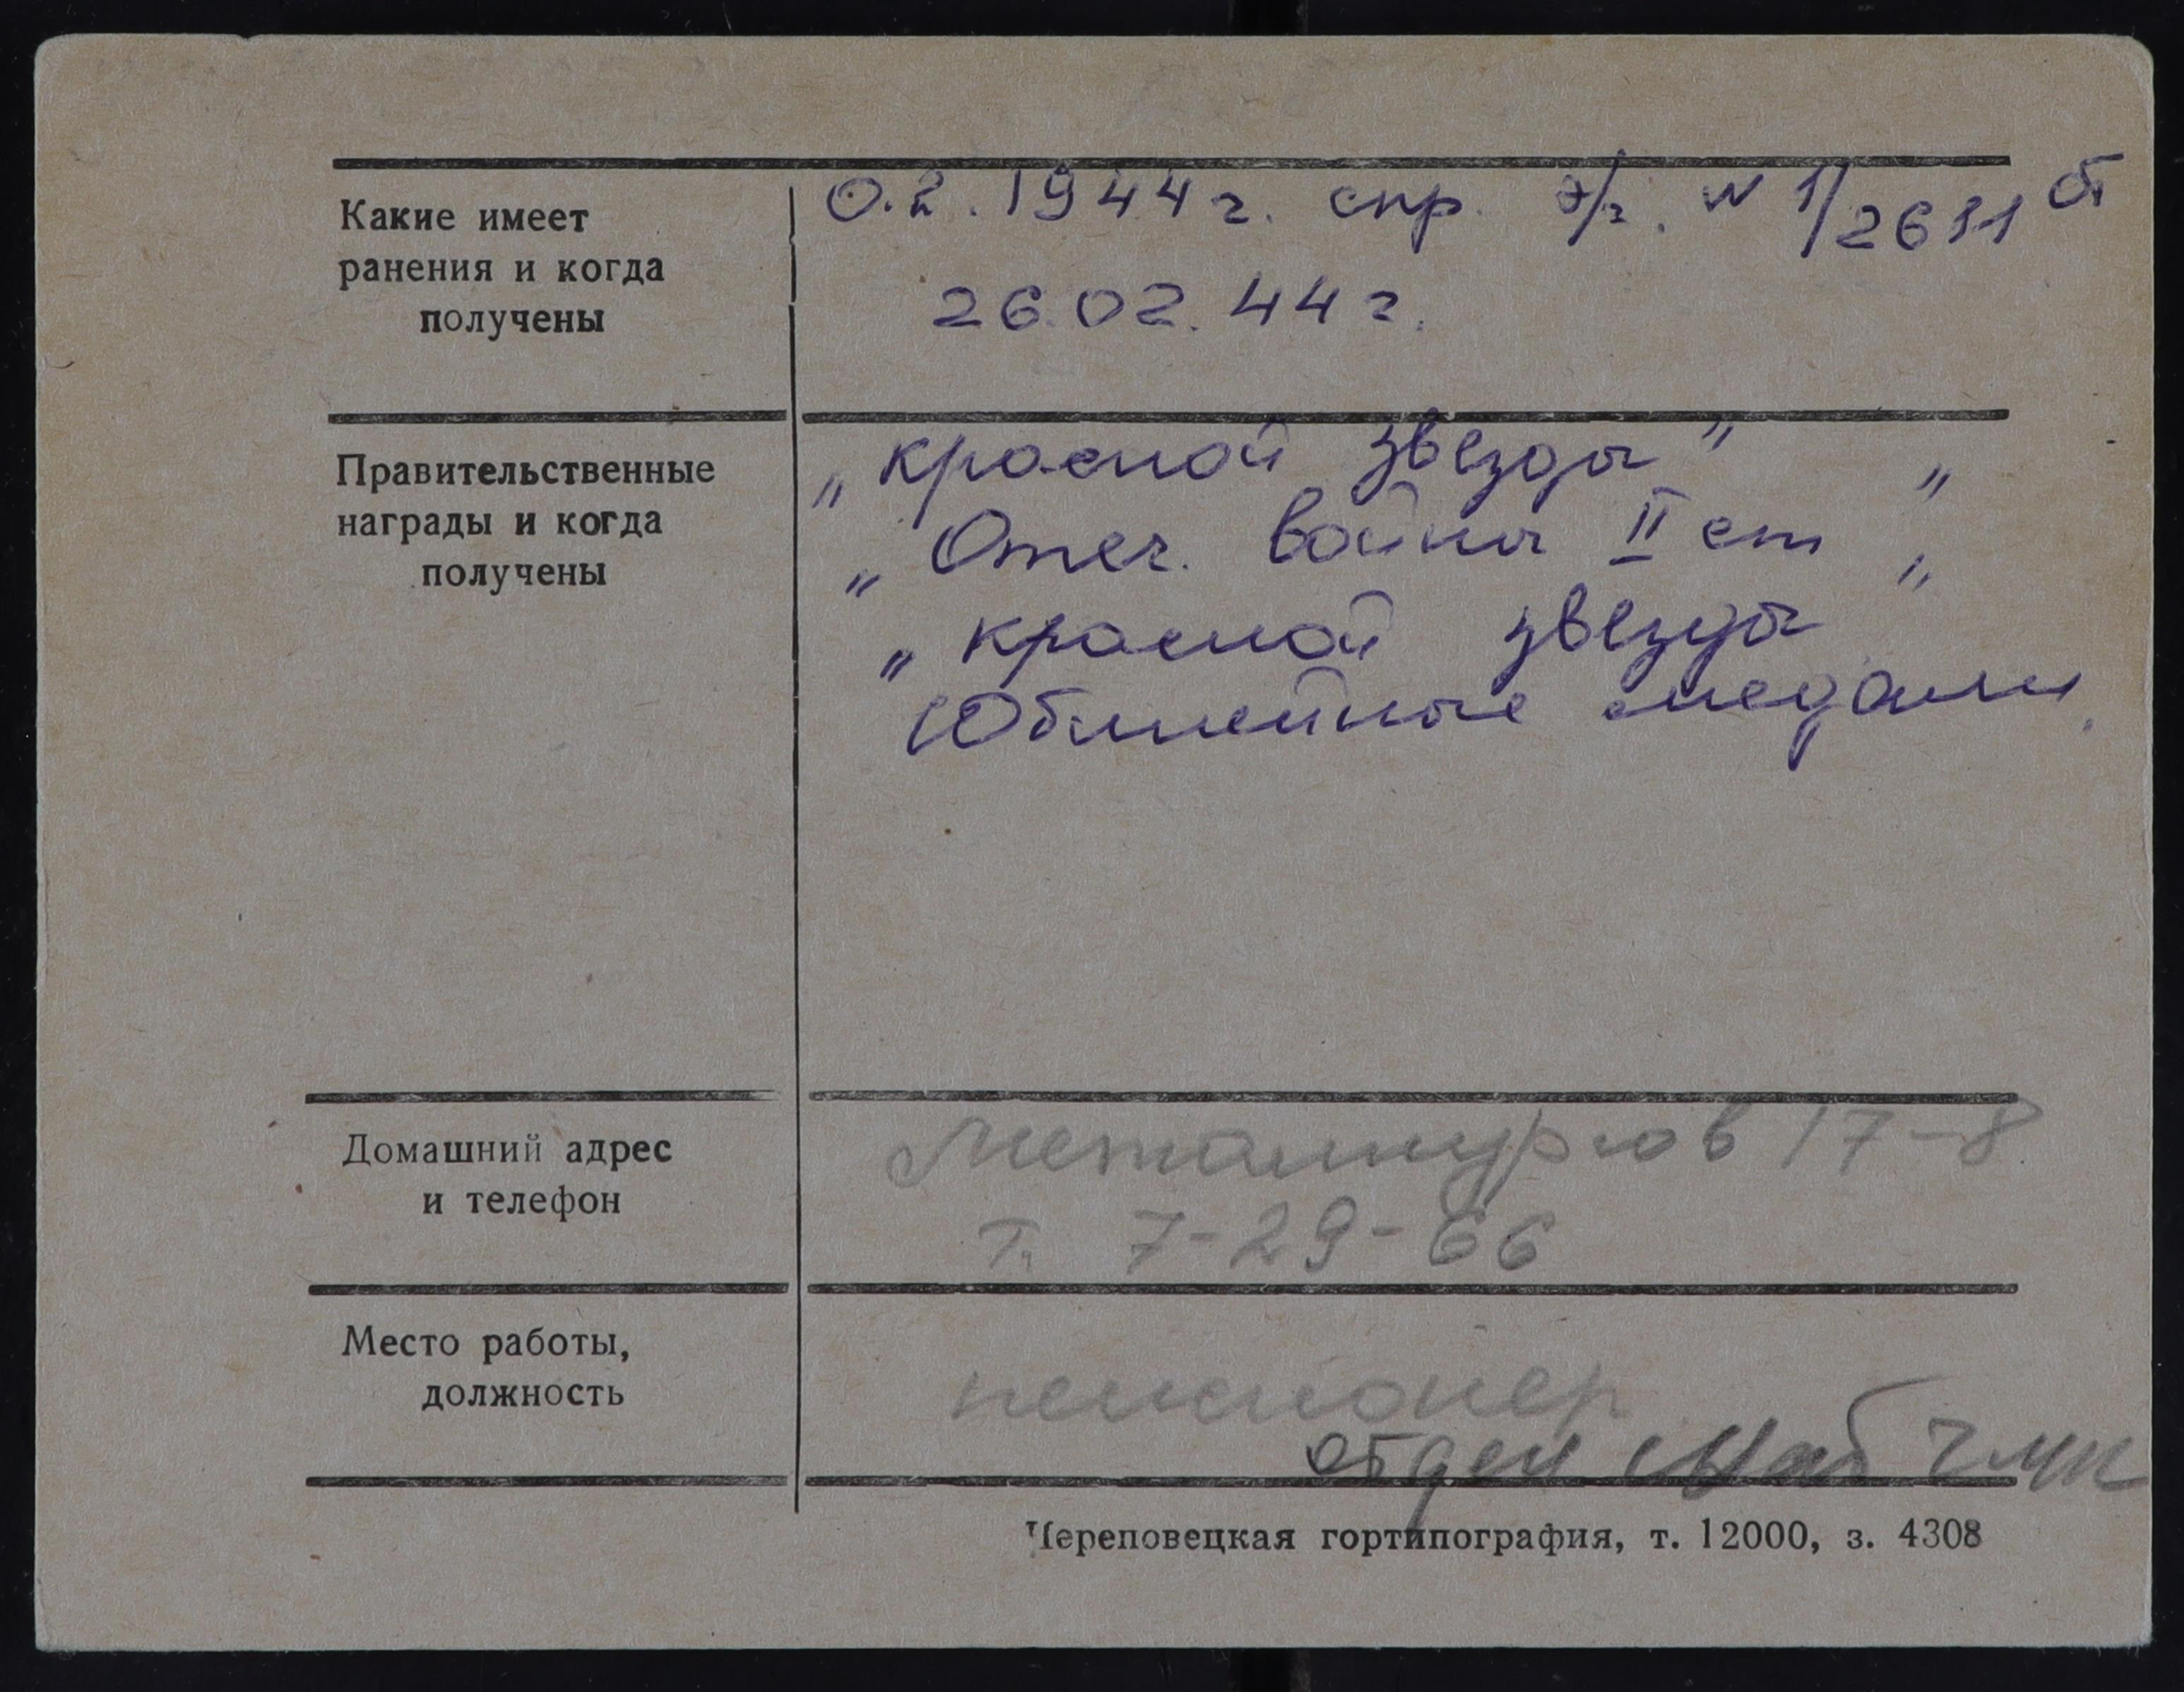 Какие имеет
ранения и когда
получены
0.2.1944 г. спр. э/г. N 1/2611 от
26.02.44 г.
Правительственные
награды и когда
получены
„красной звезды"
„Отеч. войны II ст"
„красной звезды"
Юбилейные медали.
Домашний адрес
и телефон
Металлургов 17-8
т. 7-29-66
Место работы,
должность
пенсионер
отдел снаб ЧМК
Череповецкая гортипография, т. 12000, з. 4308